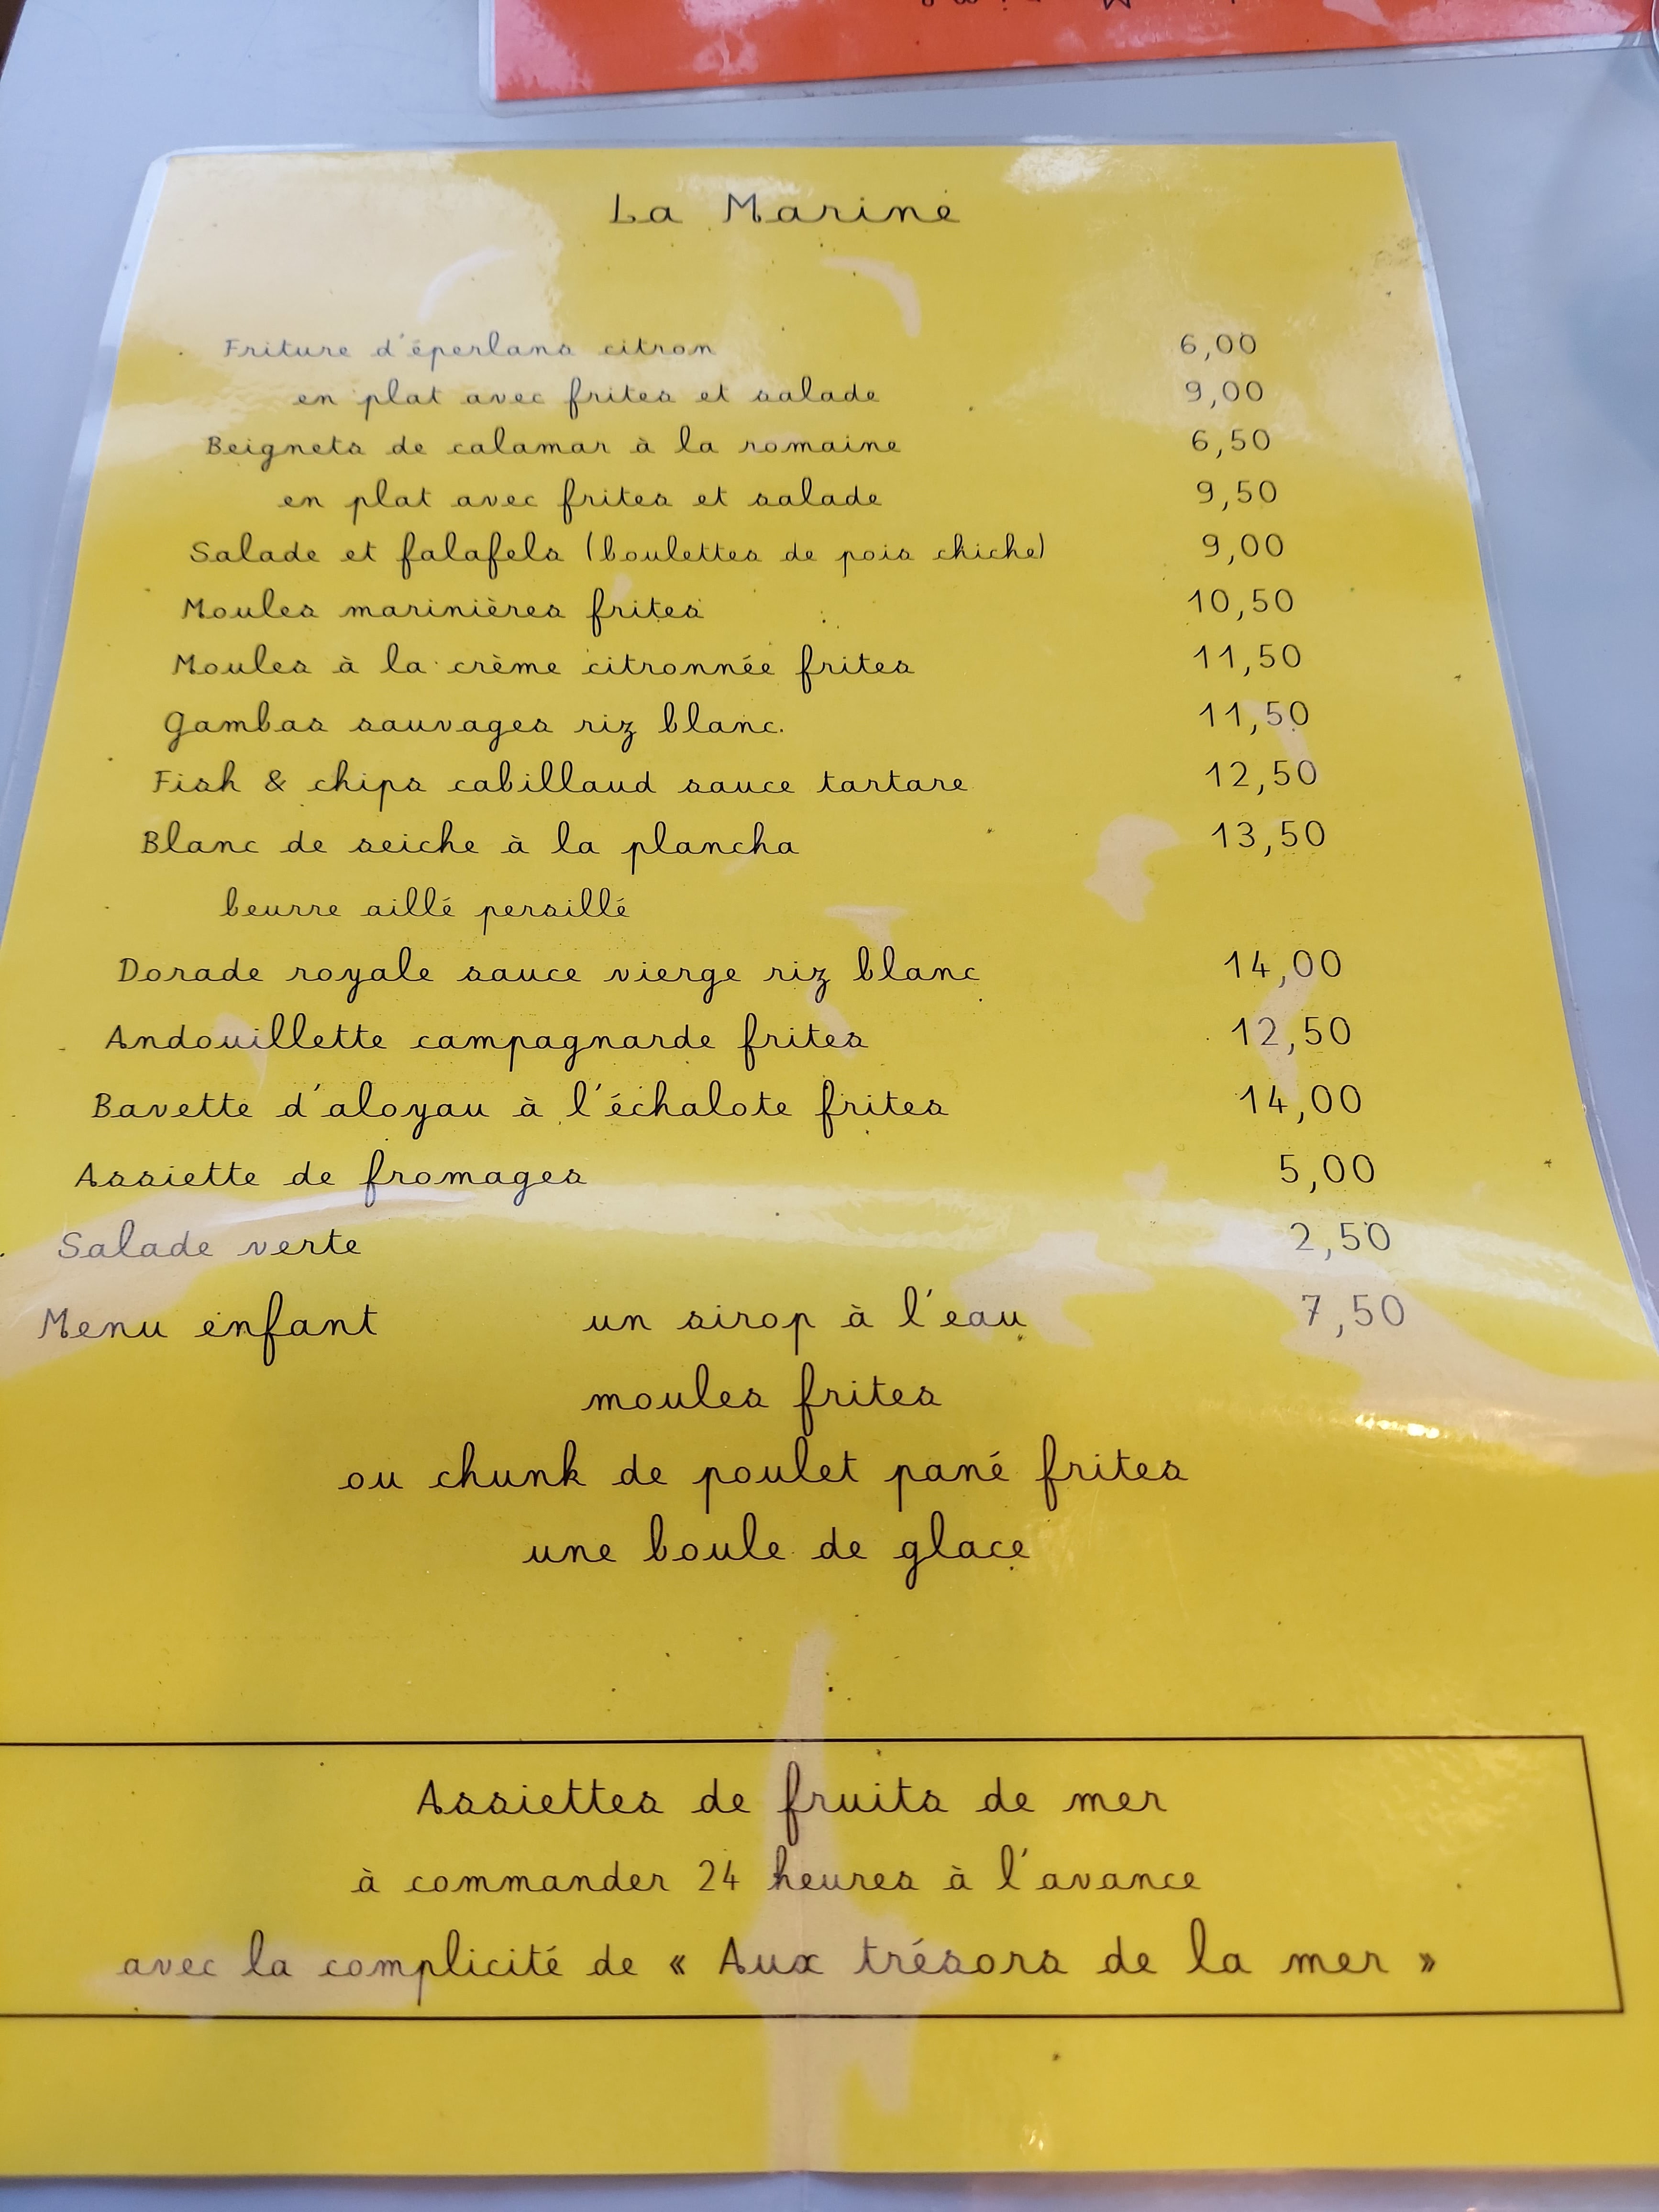 La Marine
Friture d'éperlans citron 6,00
en plat avec frites et salade 9,00
Beignets de calamar à la romaine 6,50
en plat avec frites et salade 9,50
Salade et falafels (boulettes de pois chiche) 9,00
Moules marinières frites 10,50
Moules à la crème citronnée frites 11,50
Gambas sauvages riz blanc 11,50
Fish & chips cabillaud sauce tartare 12,50
Blanc de seiche à la plancha 13,50
beurre aillé persillé
Dorade royale sauce vierge riz blanc 14,00
Andouillette campagnarde frites 12,50
Bavette d'aloyau à l'échalote frites 14,00
Assiette de fromages 5,00
Salade verte 2,50
Menu enfant un sirop à l'eau 7,50
moules frites
ou chunk de poulet pané frites
une boule de glace
Assiettes de fruits de mer
à commander 24 heures à l'avance
avec la complicité de « Aux trésors de la mer »